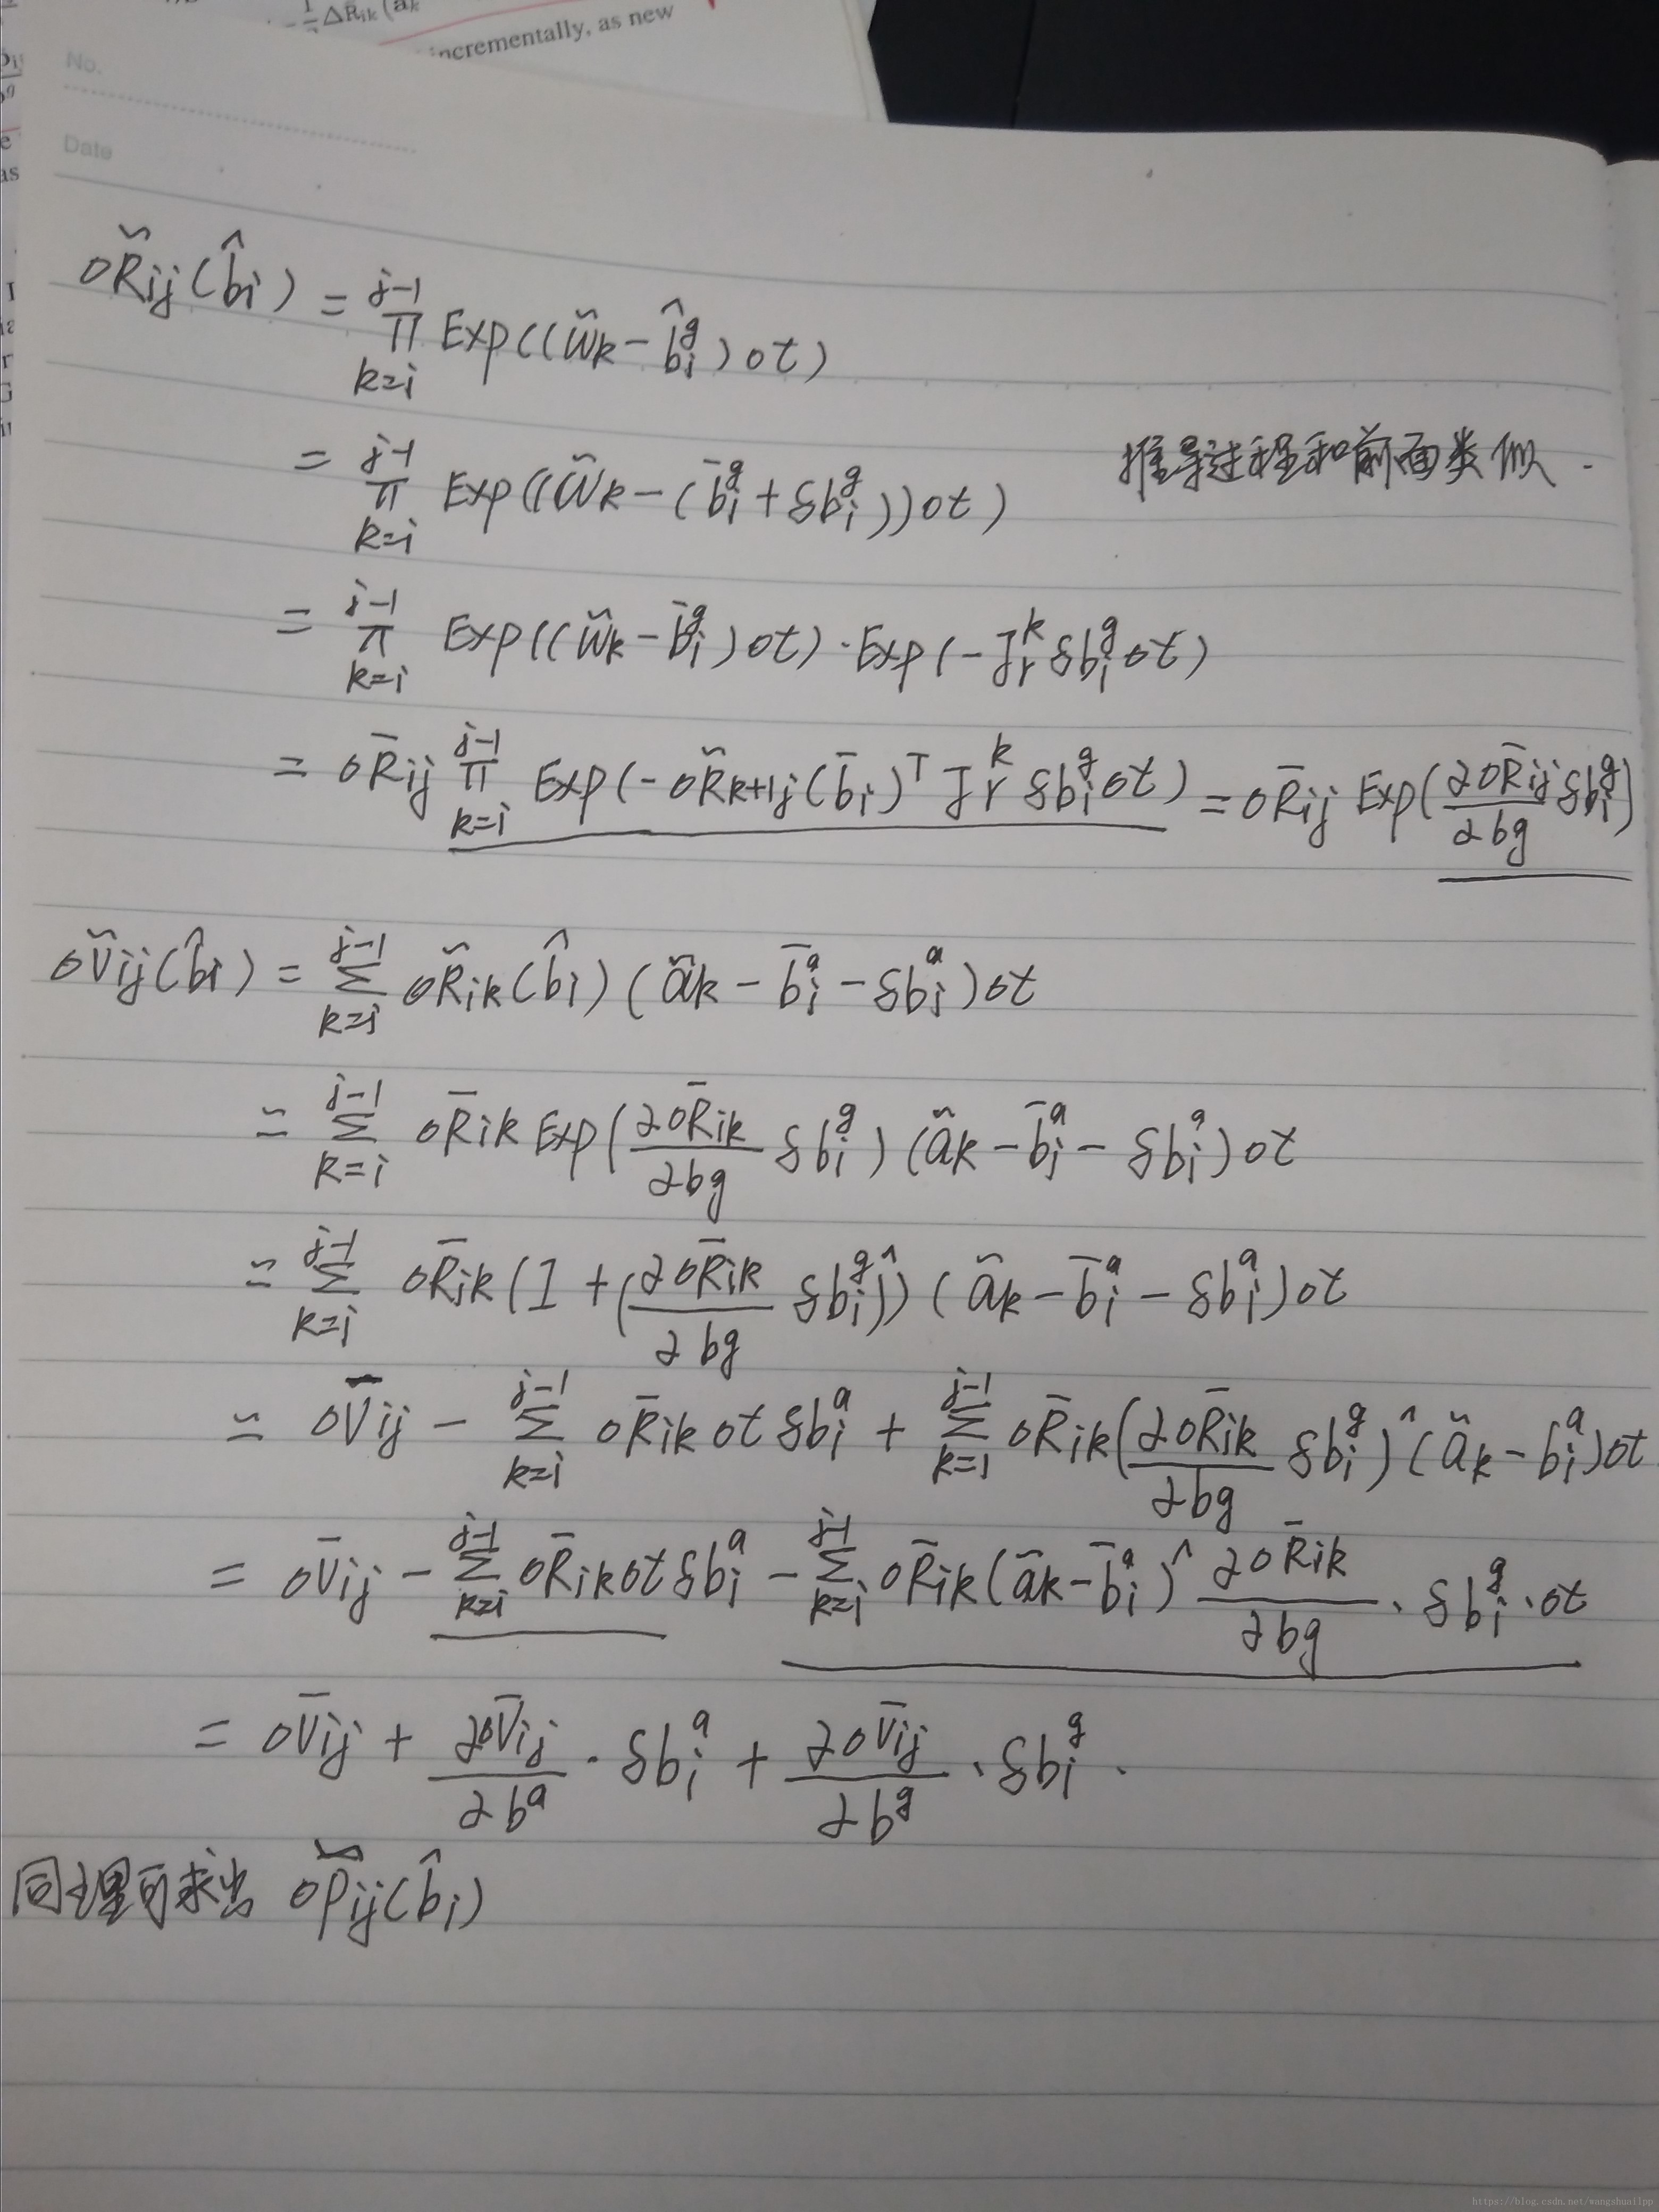 -½ΔR̄ik(ak
incrementally, as new
No.
Date
as
ΔR̃ij(b̂i) = ∏_{k=i}^{j-1} Exp((w̃k - b̂i^g)Δt)
= ∏_{k=i}^{j-1} Exp((w̃k - (b̄i^g + δbi^g))Δt) 推导过程和前面类似.
= ∏_{k=i}^{j-1} Exp((w̃k - b̄i^g)Δt)·Exp(-Jr^k δbi^g Δt)
= ΔR̄ij ∏_{k=i}^{j-1} Exp(-ΔR̃k+1j(b̄i)^T Jr^k δbi^g Δt) = ΔR̄ij Exp(∂ΔR̄ij/∂bg δbi^g)
Δṽij(b̂i) = ∑_{k=i}^{j-1} ΔR̃ik(b̂i)(ãk - b̄i^a - δbi^a)Δt
≃ ∑_{k=i}^{j-1} ΔR̄ik Exp(∂ΔR̄ik/∂bg δbi^g)(ãk - b̄i^a - δbi^a)Δt
≃ ∑_{k=i}^{j-1} ΔR̄ik(I + (∂ΔR̄ik/∂bg δbi^g)^)(ãk - b̄i^a - δbi^a)Δt
≃ Δv̄ij - ∑_{k=i}^{j-1} ΔR̄ik Δt δbi^a + ∑_{k=1}^{j-1} ΔR̄ik(∂ΔR̄ik/∂bg δbi^g)^(ãk - bi^a)Δt
= Δv̄ij - ∑_{k=i}^{j-1} ΔR̄ik Δt δbi^a - ∑_{k=i}^{j-1} ΔR̄ik(ãk - b̄i^a)^ ∂ΔR̄ik/∂bg · δbi^g · Δt
= Δv̄ij + ∂Δv̄ij/∂b^a · δbi^a + ∂Δv̄ij/∂b^g · δbi^g.
同理可求出 Δp̃ij(b̂i)
https://blog.csdn.net/wangshuailpp